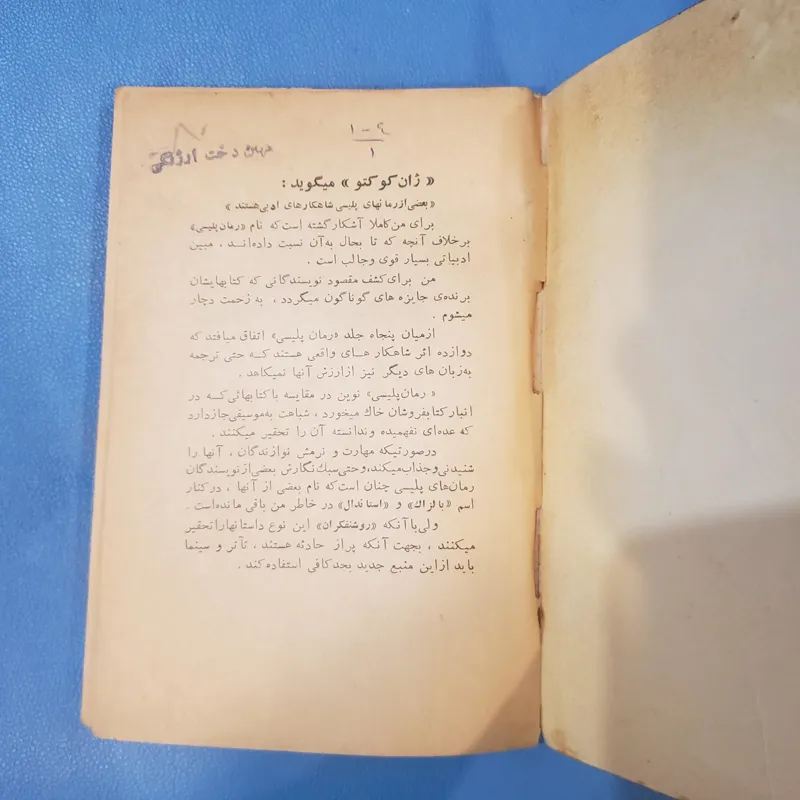 ۴ - ۱
۱
مهین دخت
« ژان کوکتو » میگوید :
« بعضی از رمانهای پلیسی شاهکارهای ادبی هستند »
برای من کاملا آشکار گشته است که نام «رمان پلیسی»
برخلاف آنچه که تا بحال به‌آن نسبت داده‌انـد ، مبین
ادبیاتی بسیار قوی وجالب است .
من برای کشف مقصود نویسندگانی که کتابهایشان
برنده‌ی جایزه های گوناگون میگردد ، به زحمت دچار
میشوم .
ازمیان پنجاه جلد «رمان پلیسی» اتفاق میافتد که
دوازده اثر شاهکار هـای واقعی هستند کـه حتی ترجمه
به‌زبان های دیگر نیز ازارزش آنها نمیکاهد .
« رمان‌پلیسی» نوین در مقایسه باکتابهائی‌کـه در
انبارکتابفروشان خاك میخورد ، شباهت به‌موسیقی‌جازدارد
که عده‌ای نفهمیده وندانسته آن را تحقیر میکنند .
درصورتیکه مهارت و نرمش نوازندگان ، آنها را
شنیدنی‌وجذاب‌میکند،وحتی‌سبك‌نگارش بعضی‌ازنویسندگان
رمان‌های پلیسی چنان است‌که نام بعضی از آنها ، درکنار
اسم «بالزاك» و «استاندال» در خاطر من باقی مانده‌است .
ولی‌باآنکه «روشنفکران» این نوع داستانهاراتحقیر
میکنند ، بجهت آنکه پراز حادثه هستند ، تآتر و سینما
باید ازاین منبع جدید بحدکافی استفاده‌کند .